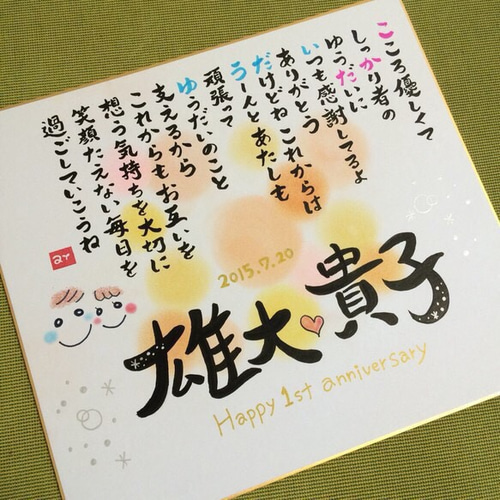 こころ優しくて
しっかり者の
ゆうだいに
いつも感謝してるよ
ありがとう
だけどねこれからは
うーんとあたしも
頑張って
ゆうだいのこと
支えるから
これからもお互いを
想う気持ちを大切に
笑顔たえない毎日を
過ごしていこうね
ar
2015.7.20
雄大♥貴子
Happy 1st anniversary